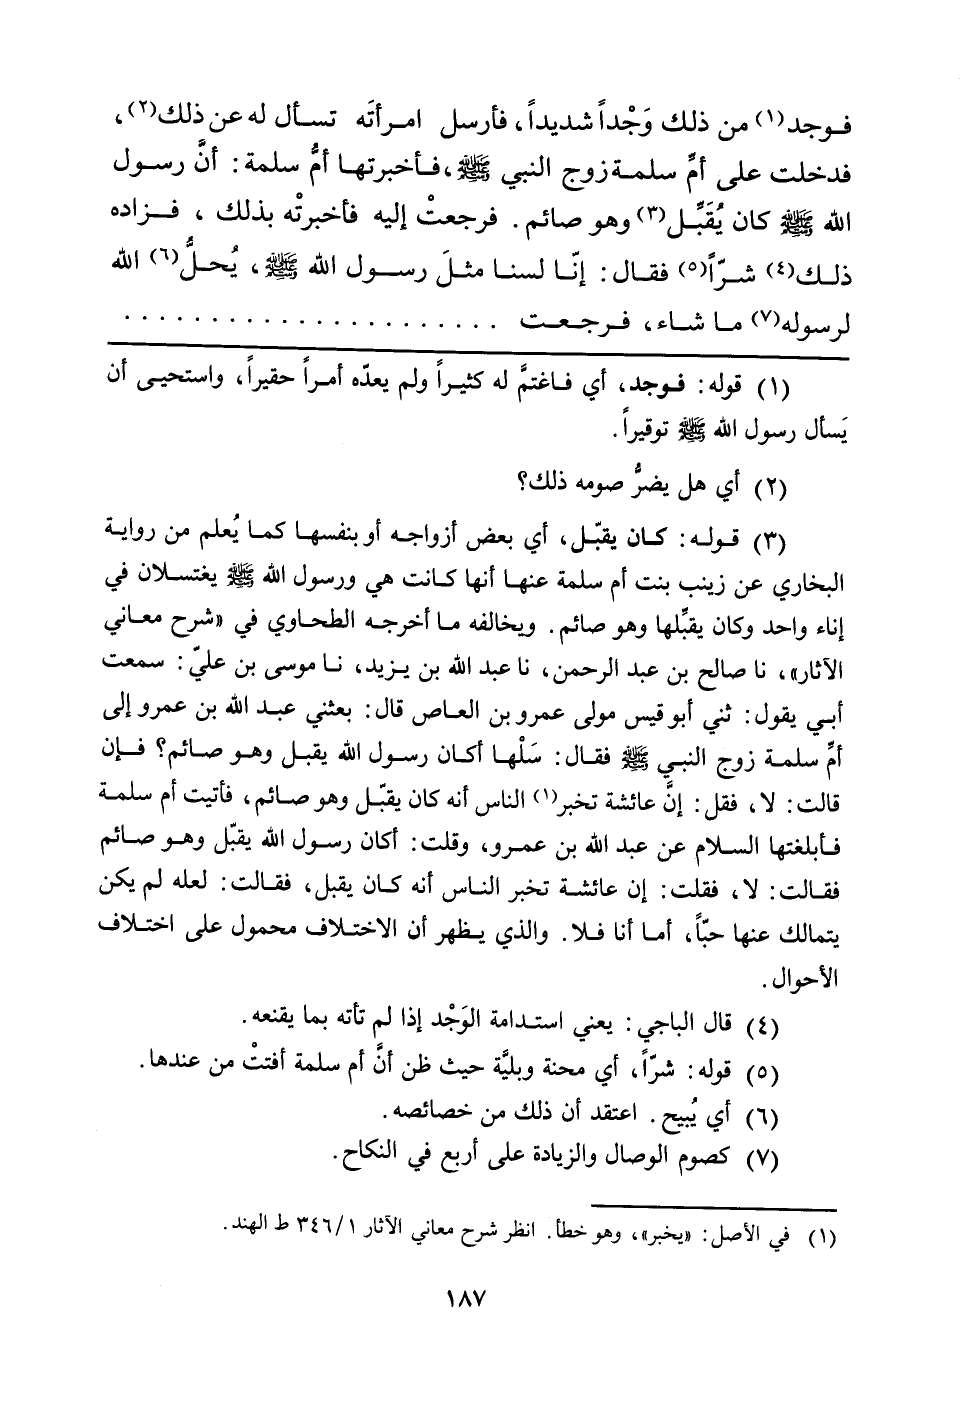 فـوجد(١) من ذلك وَجْداً شديداً، فأرسل امـرأتَه تسـأل له عن ذلك(٢)،
فدخلت على أمِّ سلمـة زوج النبي ﷺ، فـأخبرتهـا أمُّ سلمة: أنَّ رسـول
الله ﷺ كان يُقَبِّـل(٣) وهو صائم. فرجعتْ إليه فأخبرتْه بذلك، فـزاده
ذلـك(٤) شـرّاً(٥) فقـال: إنّـا لسنـا مثـلَ رسـول الله ﷺ، يُحـلُّ(٦) الله
لرسوله(٧) مـا شـاء، فـرجـعـت . . . . . . . . . . . . . . . . . . . . . .
(١) قوله: فـوجد، أي فـاغتمَّ له كثيـراً ولم يعدّه أمـراً حقيراً، واستحيـى أن
يَسأل رسول الله ﷺ توقيراً.
(٢) أي هل يضرُّ صومه ذلك؟
(٣) قـولـه: كـان يقبّـل، أي بعض أزواجـه أو بنفسهـا كمـا يُعلم من روايـة
البخاري عن زينب بنت أم سلمة عنهـا أنها كـانت هي ورسول الله ﷺ يغتسـلان في
إناء واحد وكان يقبِّلها وهو صائم. ويخالفه مـا أخرجـه الطحاوي في «شرح معـاني
الآثار»، نا صالح بن عبد الرحمن، نا عبد الله بن يـزيد، نـا موسى بن عليّ: سمعت
أبي يقول: ثني أبو قيس مولى عمرو بن العـاص قال: بعثني عبـد الله بن عمرو إلى
أمِّ سلمـة زوج النبـي ﷺ فقـال: سَلْهـا أكـان رسـول الله يقبـل وهـو صـائم؟ فـإن
قالت: لا، فقل: إنَّ عائشة تخبر(١) الناس أنه كان يقبّـل وهو صـائم، فأتيت أم سلمـة
فـأبلغتهـا السـلام عن عبـد الله بن عمـرو، وقلت: أكان رسـول الله يقبّل وهـو صـائم
فقـالت: لا، فقلت: إن عائشـة تخبر النـاس أنه كـان يقبل، فقـالت: لعله لم يكن
يتمالك عنها حبّاً، أمـا أنا فـلا. والذي يـظهر أن الاختـلاف محمول على اختـلاف
الأحوال.
(٤) قال الباجي: يعني استـدامة الوَجْد إذا لم تأته بما يقنعه.
(٥) قوله: شرّاً، أي محنة وبليَّة حيث ظن أنَّ أم سلمة أفتتْ من عندها.
(٦) أي يُبيح. اعتقد أن ذلك من خصائصه.
(٧) كصوم الوصال والزيادة على أربع في النكاح.
(١) في الأصل: «يخبر»، وهو خطأ. انظر شرح معاني الآثار ٣٤٦/١ ط الهند.
١٨٧